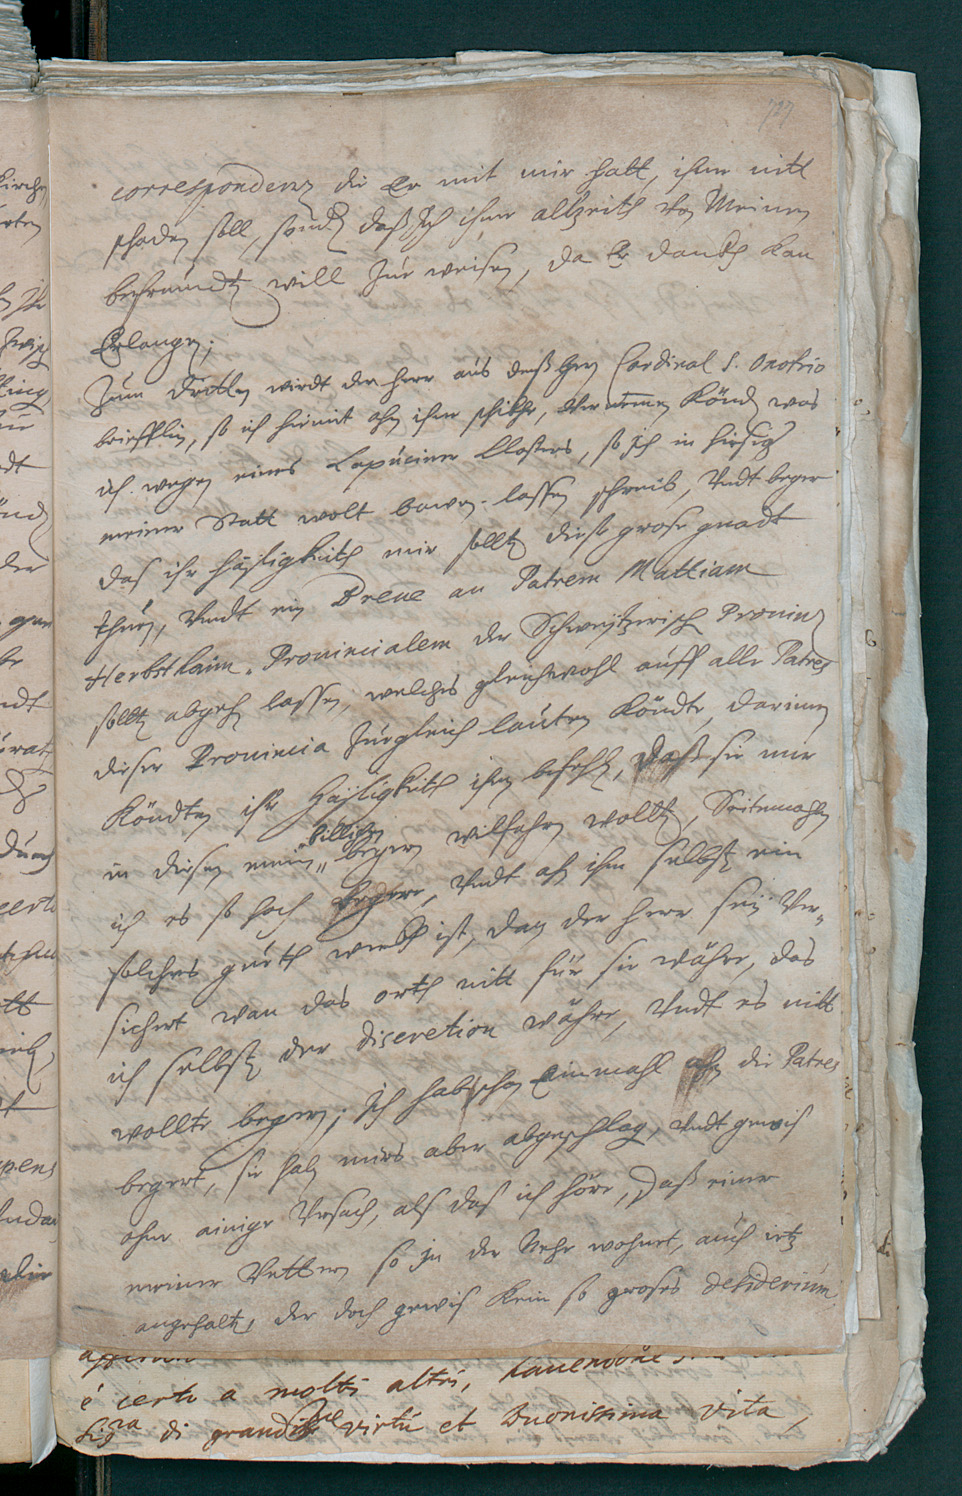 717
correspondenz die Er mit mir hatt, ihme nitt
schaden soll, sonder daß Ich ihme allzeith von Meinen
befreundten will zue weisen, da Er danckh kan
Erlangen;
Zum dritten wirdt der herr aus deß herrn Cardinal S. Onofrio
briefflin, so ich hiemit ahn ihm schikhe, Vernemmen Könden was
ich wegen eines Capuciner Closters, so Ich in hiesiger
meiner Statt wolt bawen lassen schreib, Undt beger
das ihr hayligkeith mir sollte diese grose gnadt
thuen, Undt ein Breve an Patrem Mattiam
Herbsthaim. Provincialem der Schweytzerisch Provinz
sollte abgehen lassen, welches gleichwohl auff alle Patres
dieser Provincia zuegleich lauten Köndte, darinnen
Köndten ihr Hayligkeith ihnen befehlen, daß sie mir
in diesen meinen billichen begeren wilfahren wollten, Seitemahlen
ich es so hoch begere, Undt ahn ihm selbst ein
solches gueth werkh ist, dan der herr sey Ver¬
sichert wan das orth nitt für sie währe, das
ich selbst der discretion währe, Undt es nitt
wollte begeren; Ich hab schon Einmahl ahn die Patres
begert, sie haben mirs aber abgeschlagen, Undt gewis
ohne ainige Ursach, als das ich höre, daß einer
meiner Vettern so in der Nehe wohnet, auch ietz
angehalten, der doch gewis Kein so groses desiderium
è certo a molti altri,
Sig.ra di grandissime virtù et buonissima vita,